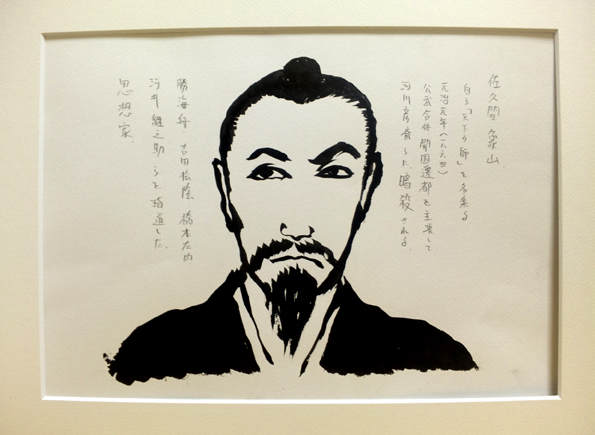 佐久間象山
自ら「天下の師」と名乗る
元治元年(一八六四)
公武合体 開国遷都を主張して
河川彦斎らに、暗殺される。
勝海舟、吉田松陰、橋本左内
河井継之助、らを指導した、
思想家、